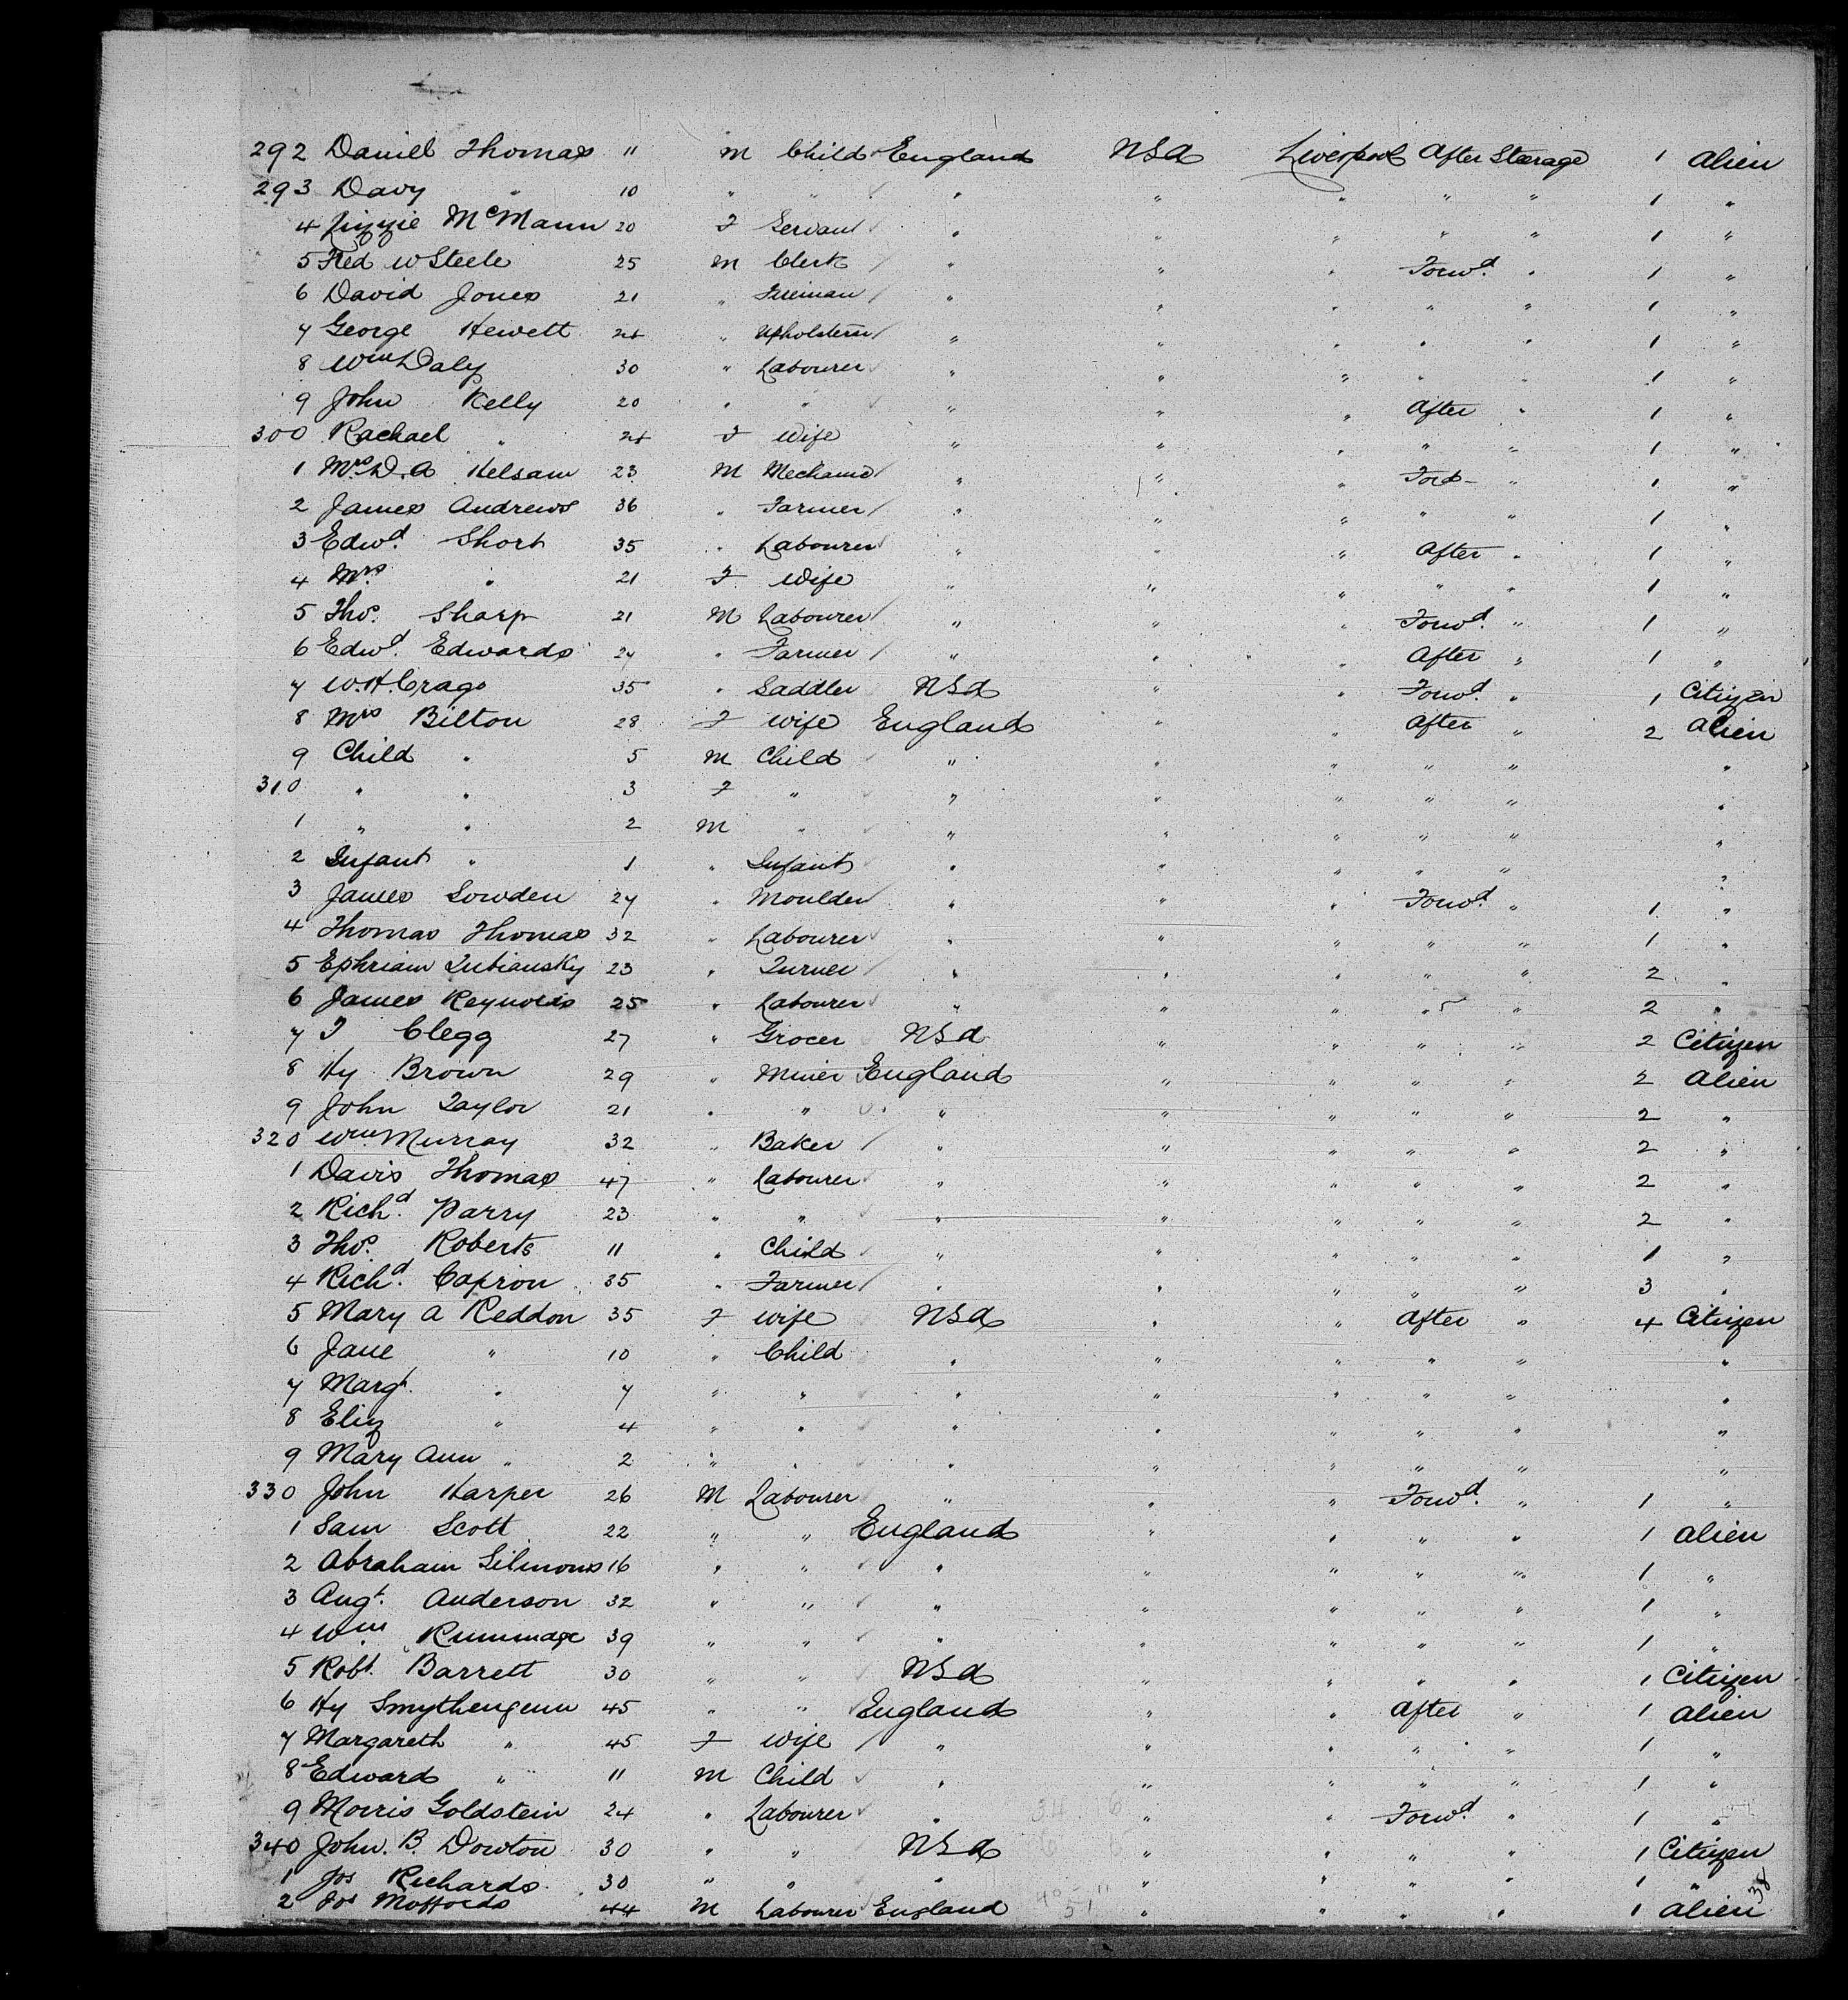 292 Daniel Thomas 11 M Child England USA Liverpool After Steerage 1 Alien
293 Davy " 10 " " " " " " " 1 "
4 Lizzie McMann 20 F Servant " " " " " 1 "
5 Fred W Steele 25 M Clerk " " " Forwd. " 1 "
6 David Jones 21 " Fireman " " " " " 1 "
7 George Hewett 24 " Upholsterer " " " " " 1 "
8 Wm Daly 30 " Labourer " " " " " 1 "
9 John Kelly 20 " " " " " After " 1 "
300 Rachael " 24 F Wife " " " " " 1 "
1 D. A 23 M Mechanic " " " " 1 "
2 James Andrews 36 " Farmer " " " " " 1 "
3 Edwd. Short 35 " Labourer " " " After " 1 "
4 Mrs " 21 F Wife " " " " " 1 "
5 Thos. Sharp 21 M Labourer " " " Forwd. " 1 "
6 Edwd. Edwards 24 " Farmer " " " After " 1 "
7 W. H. Crago 35 " Saddler USA " " Forwd. " 1 Citizen
8 Mrs Bilton 28 F Wife England " " After " 2 Alien
9 Child " 5 M Child " " " " " "
310 " " 3 F " " " " " " "
1 " " 2 M " " " " " " "
2 Infant " 1 " Infant " " " " " "
3 James Sowden 27 " Moulder " " " Forwd. " 1 "
4 Thomas Thomas 32 " Labourer " " " " " 1 "
5 Ephriam 23 " Turner " " " " " 2 "
6 James Reynolds 25 " Labourer " " " " " 2 "
7 Clegg 27 " Grocer USA " " " " 2 Citizen
8 Hy Brown 29 " Miner England " " " " 2 Alien
9 John Taylor 21 " " " " " " " 2 "
320 Wm Murray 32 " Baker " " " " " 2 "
1 Davis Thomas 47 " Labourer " " " " " 2 "
2 Richd. Parry 23 " " " " " " " 2 "
3 Thos. Roberts 11 " Child " " " " " 1 "
4 Richd. Capron 35 " Farmer " " " " " 3 "
5 Mary A Reddon 35 F Wife USA " " After " 4 Citizen
6 Jane " 10 " Child " " " " " "
7 Margt. " 7 " " " " " " " "
8 Eliz " 4 " " " " " " " "
9 Mary Ann " 2 " " " " " " " "
330 John Harper 26 M Labourer " " " Forwd. " 1 "
1 Sam Scott 22 " " England " " " " 1 Alien
2 Abraham 16 " " " " " " " 1 "
3 Augt. Anderson 32 " " " " " " " 1 "
4 Wm Rummage 39 " " " " " " " 1 "
5 Robt. Barrett 30 " " USA " " " " 1 Citizen
6 Hy 45 " " England " " After " 1 Alien
7 Margareth " 45 F Wife " " " " " 1 "
8 Edward " 11 M Child " " " " " 1 "
9 Morris Goldstein 24 " Labourer " " " Forwd. " 1 "
340 John. B. Dowton 30 " " USA " " " " 1 Citizen
1 Jos Richards 30 " " " " " " " 1 "
2 Jos 44 M Labourer England " " " " 1 Alien
38